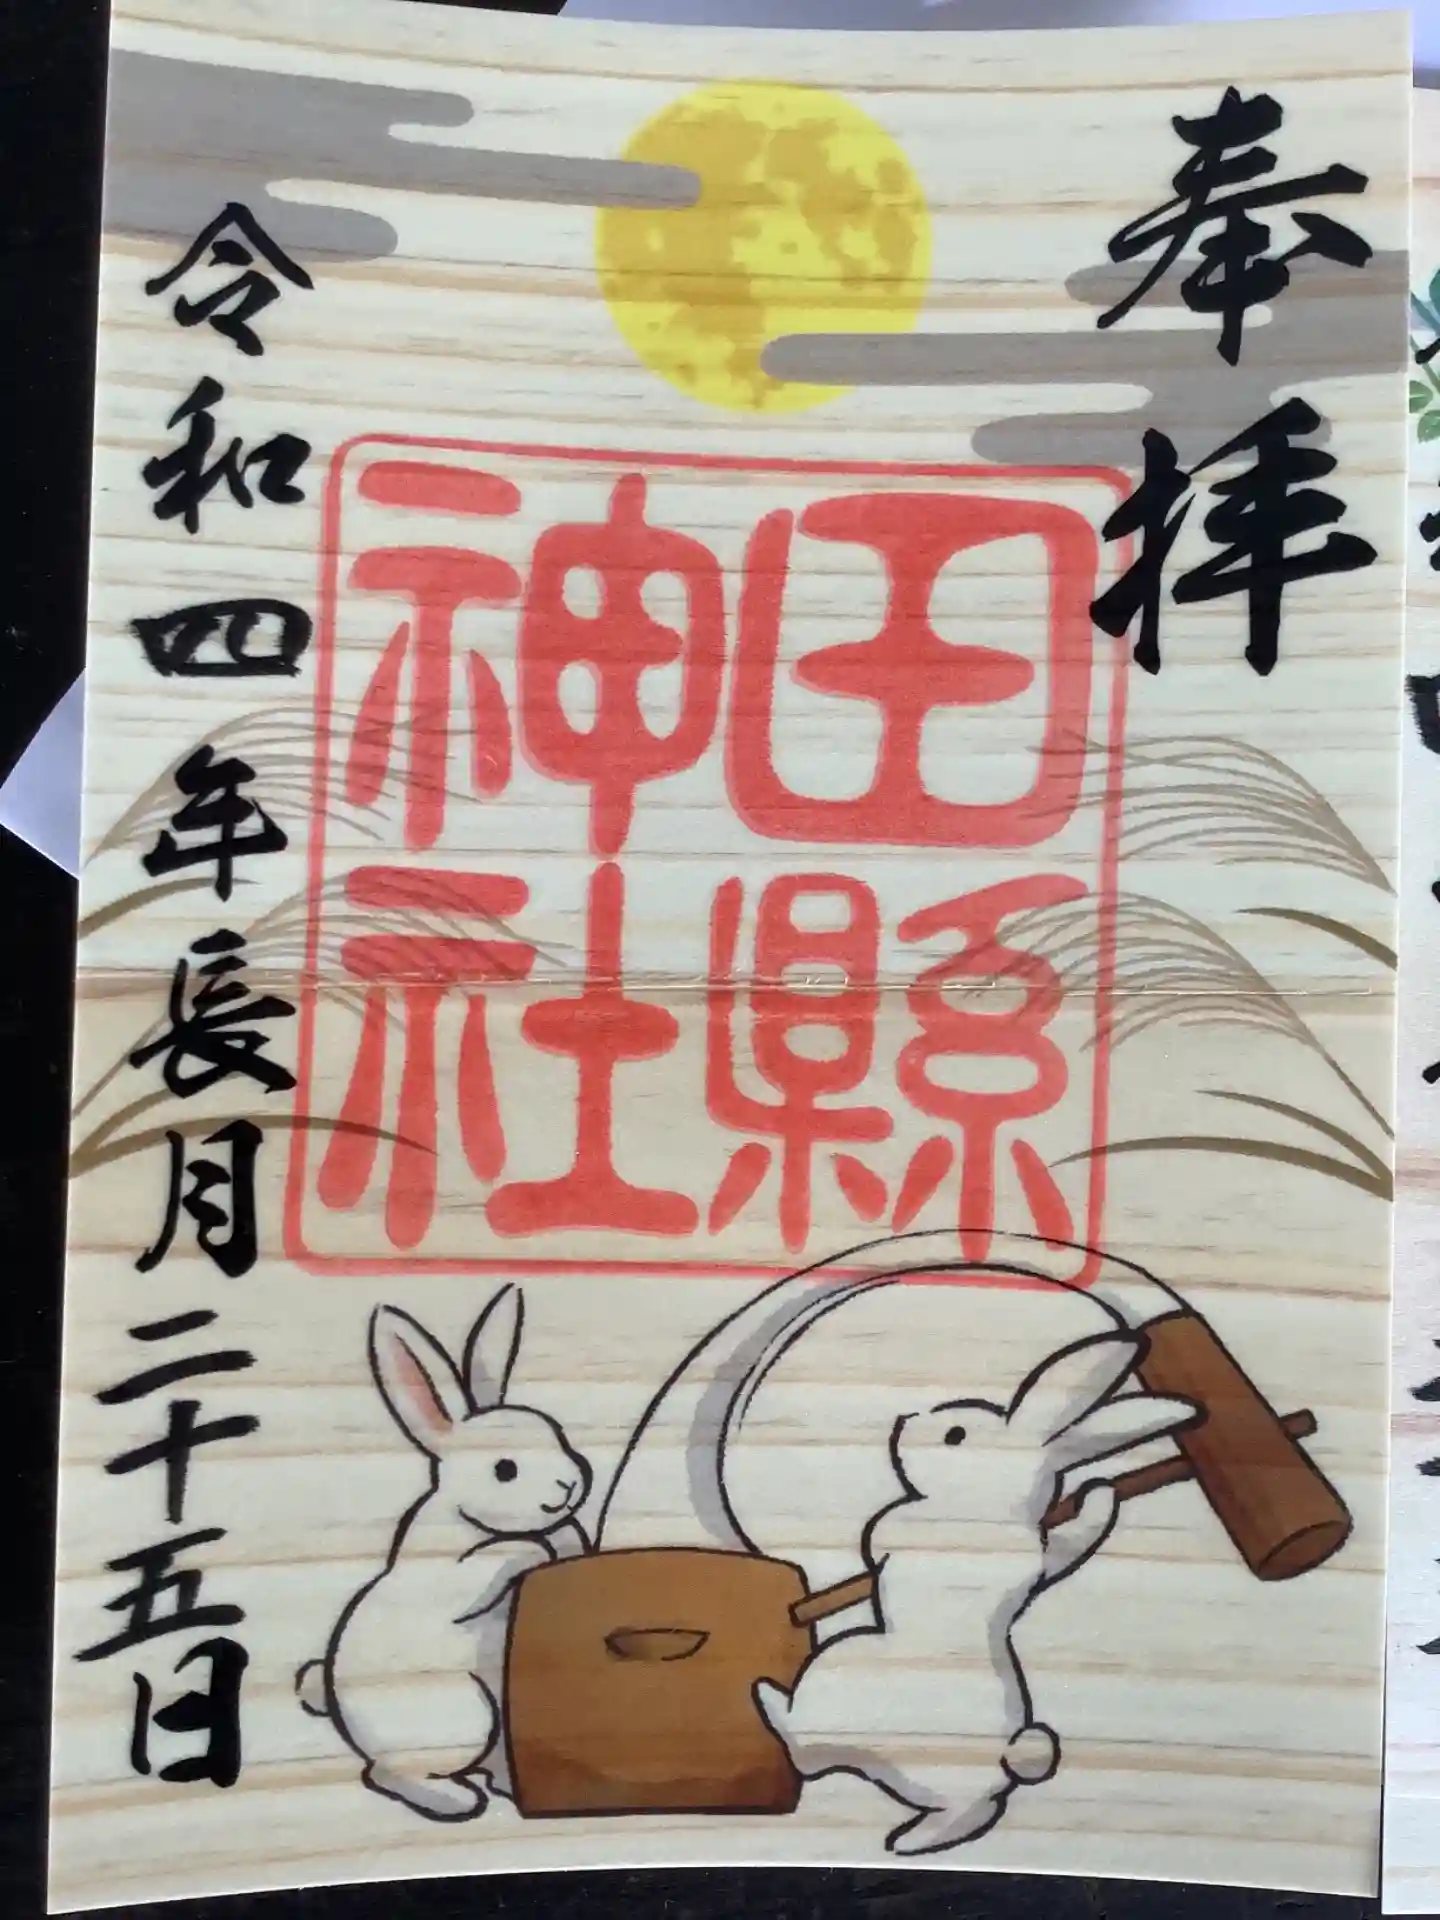 奉拝
田縣
神社
令和四年長月二十五日